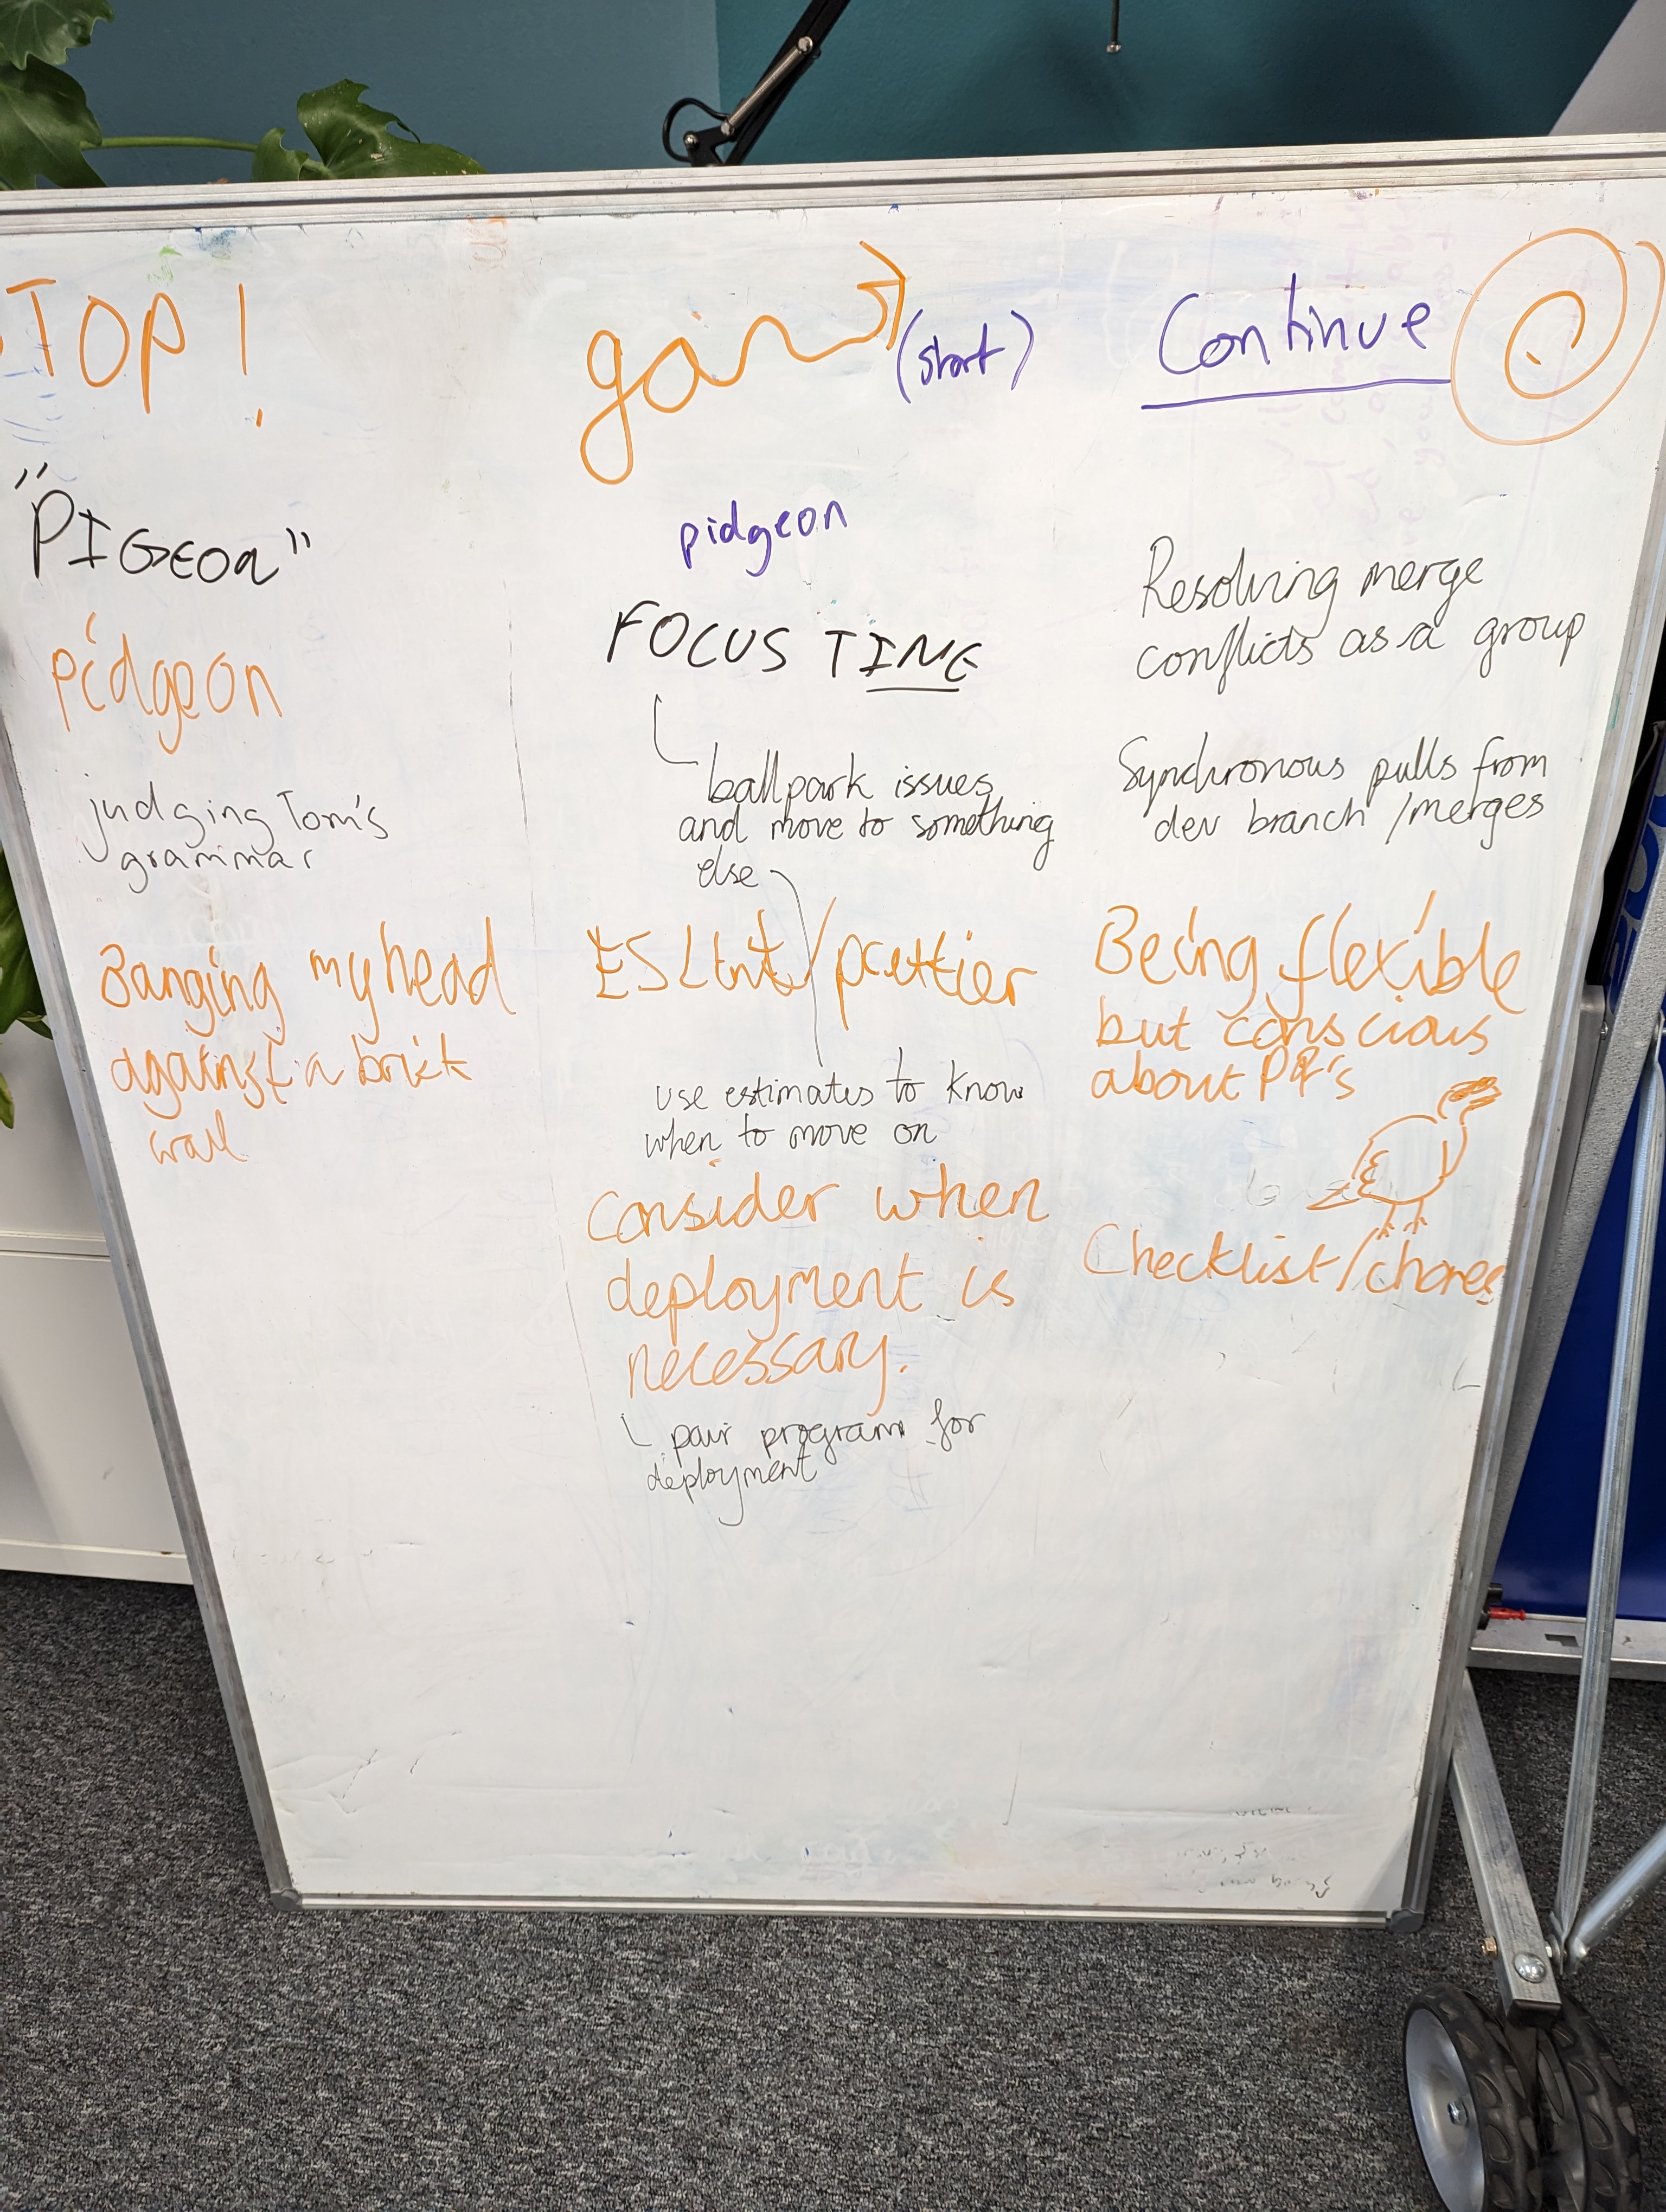 STOP!
"PIGEON"
pidgeon
judging Tom's
grammar
Banging my head
against a brick
wall
(start)
pidgeon
FOCUS TIME
ballpark issues
and move to something
else
ESLint/prettier
use estimates to know
when to move on
consider when
deployment is
necessary.
pair program for
deployment
Continue
Resolving merge
conflicts as a group
Synchronous pulls from
dev branch/merges
Being flexible
but conscious
about PR's
Checklist/chores